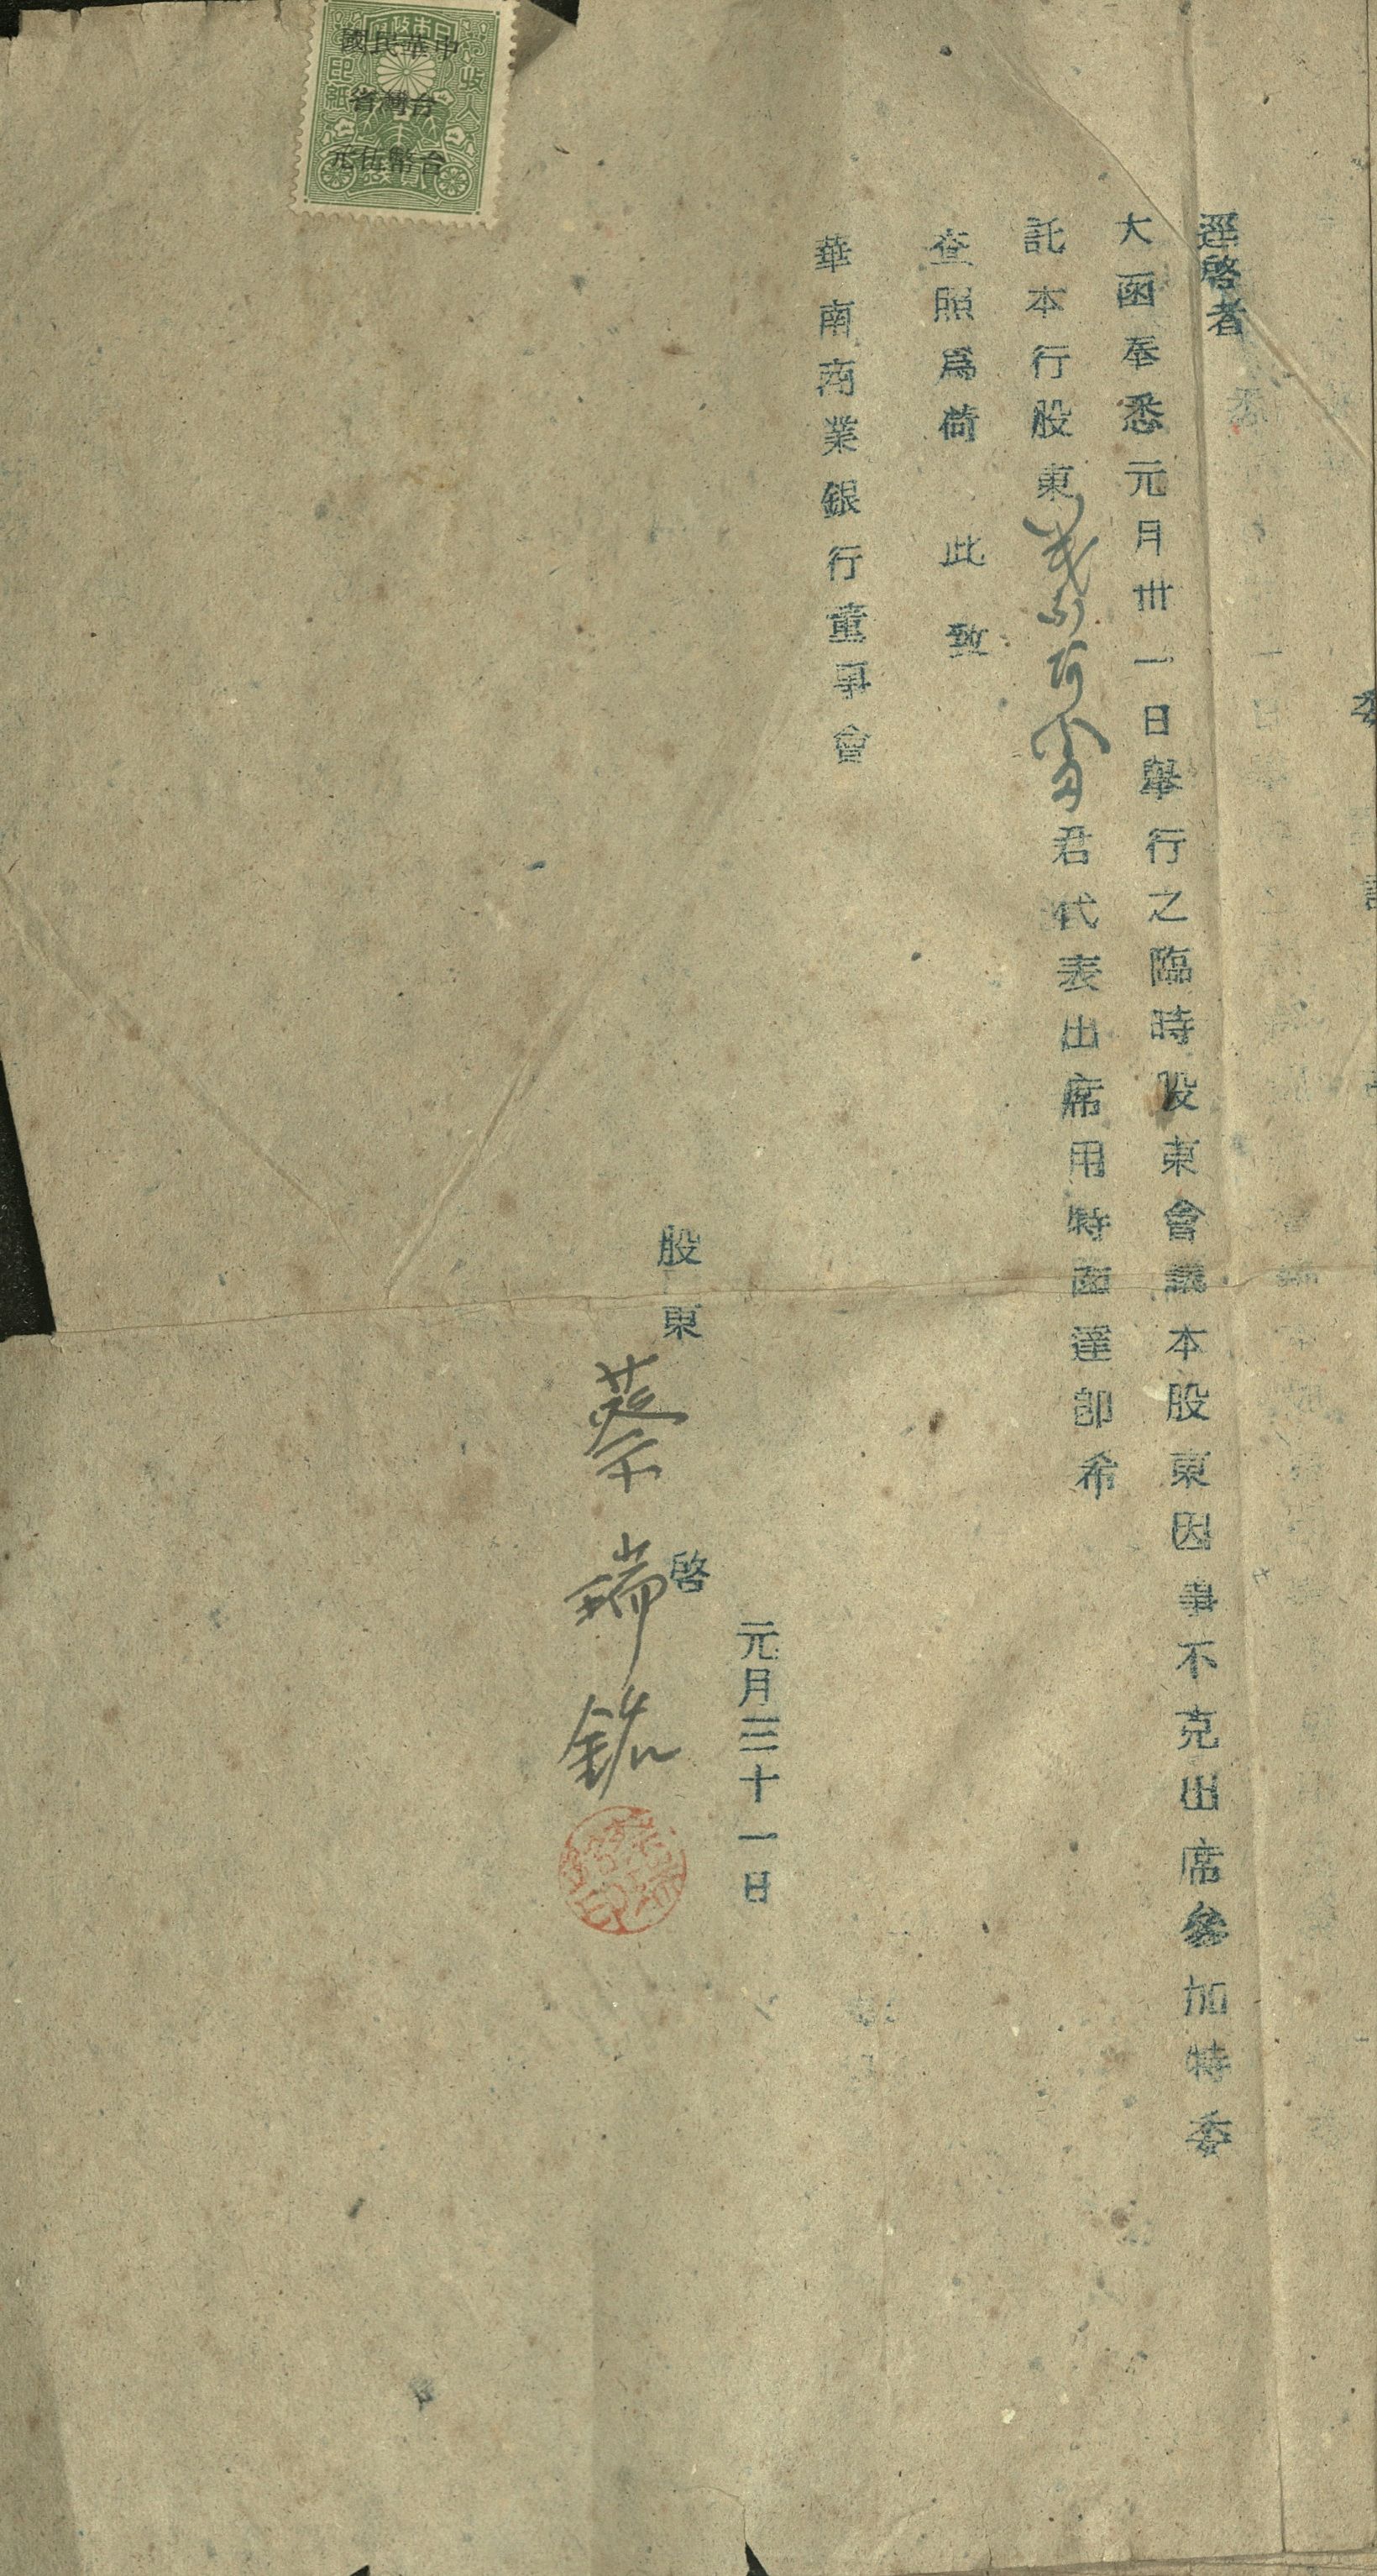 委
逕啓者
大函奉悉元月卅一日舉行之臨時股東會議本股東因事不克出席參加特委
託本行股東
君代表出席用特函達卽希
查照爲荷 此致
華南商業銀行董事會
元月三十一日
股東 啓
蔡瑞
中華民國
台灣省
台幣伍元
收入
印紙